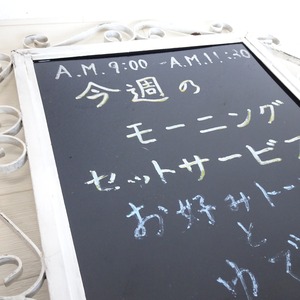 A.M.9:00 -A.M.11:30
今週の
モーニング
セットサービー
お好みトー
と
ゆで